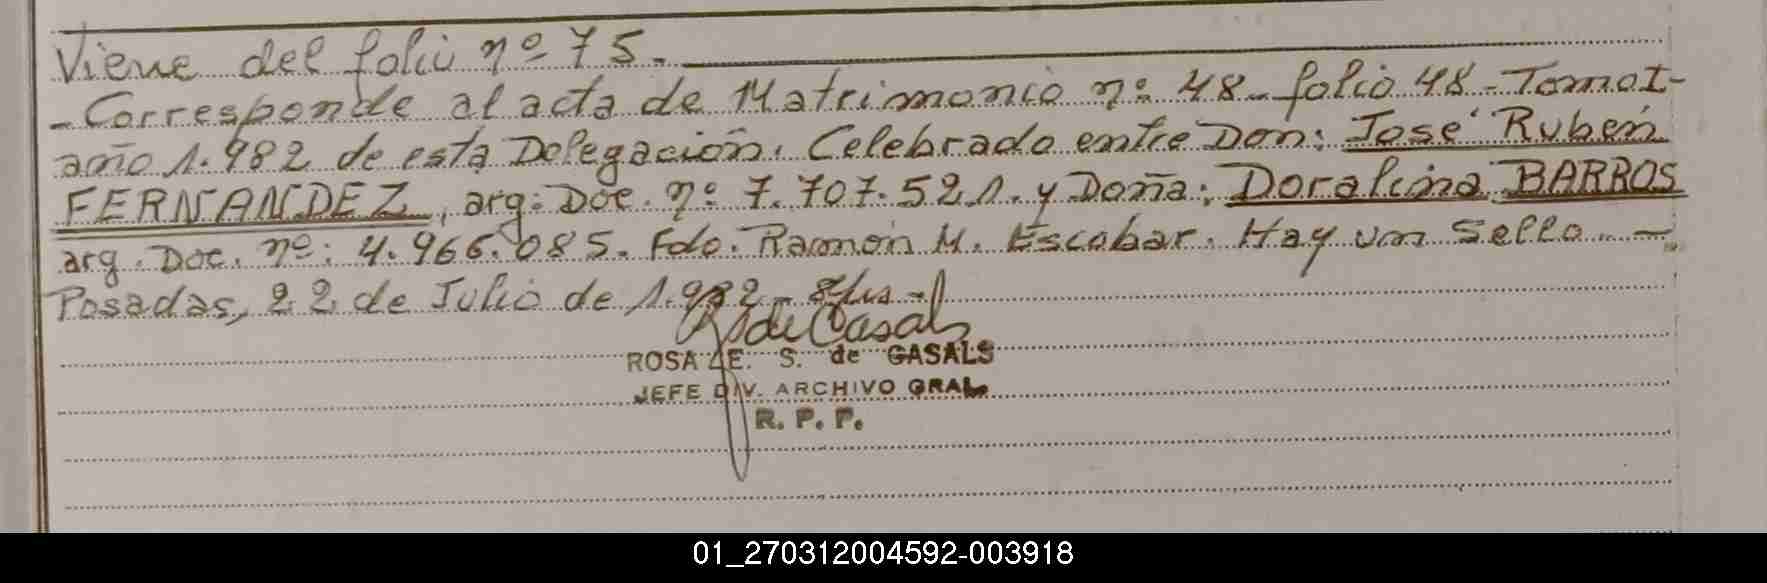 Viene del folio nº 75.
- Corresponde al acta de Matrimonio nº 48 - folio 48 - Tomo I -
año 1.982 de esta Delegación. Celebrado entre Don: José Rubén
FERNANDEZ, arg. Doc. nº 7.707.521. y Doña: Doralina BARROS
arg. Doc. nº: 4.966.085. Fdo. Ramón M. Escobar. Hay un Sello. -
Posadas, 22 de Julio de 1.982 -
R de Casals
ROSA E. S. de CASALS
JEFE DIV. ARCHIVO GRAL.
R. P. P.
01_270312004592-003918